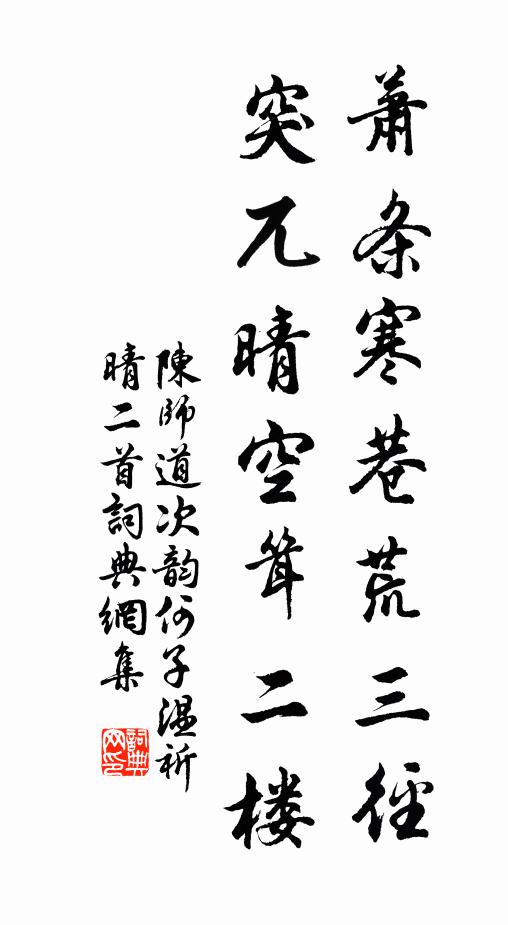 萧条寒巷荒三徑
突兀晴空耸二楼
陳師道次韵何子温祈
晴二首詞典網集
詞典網印